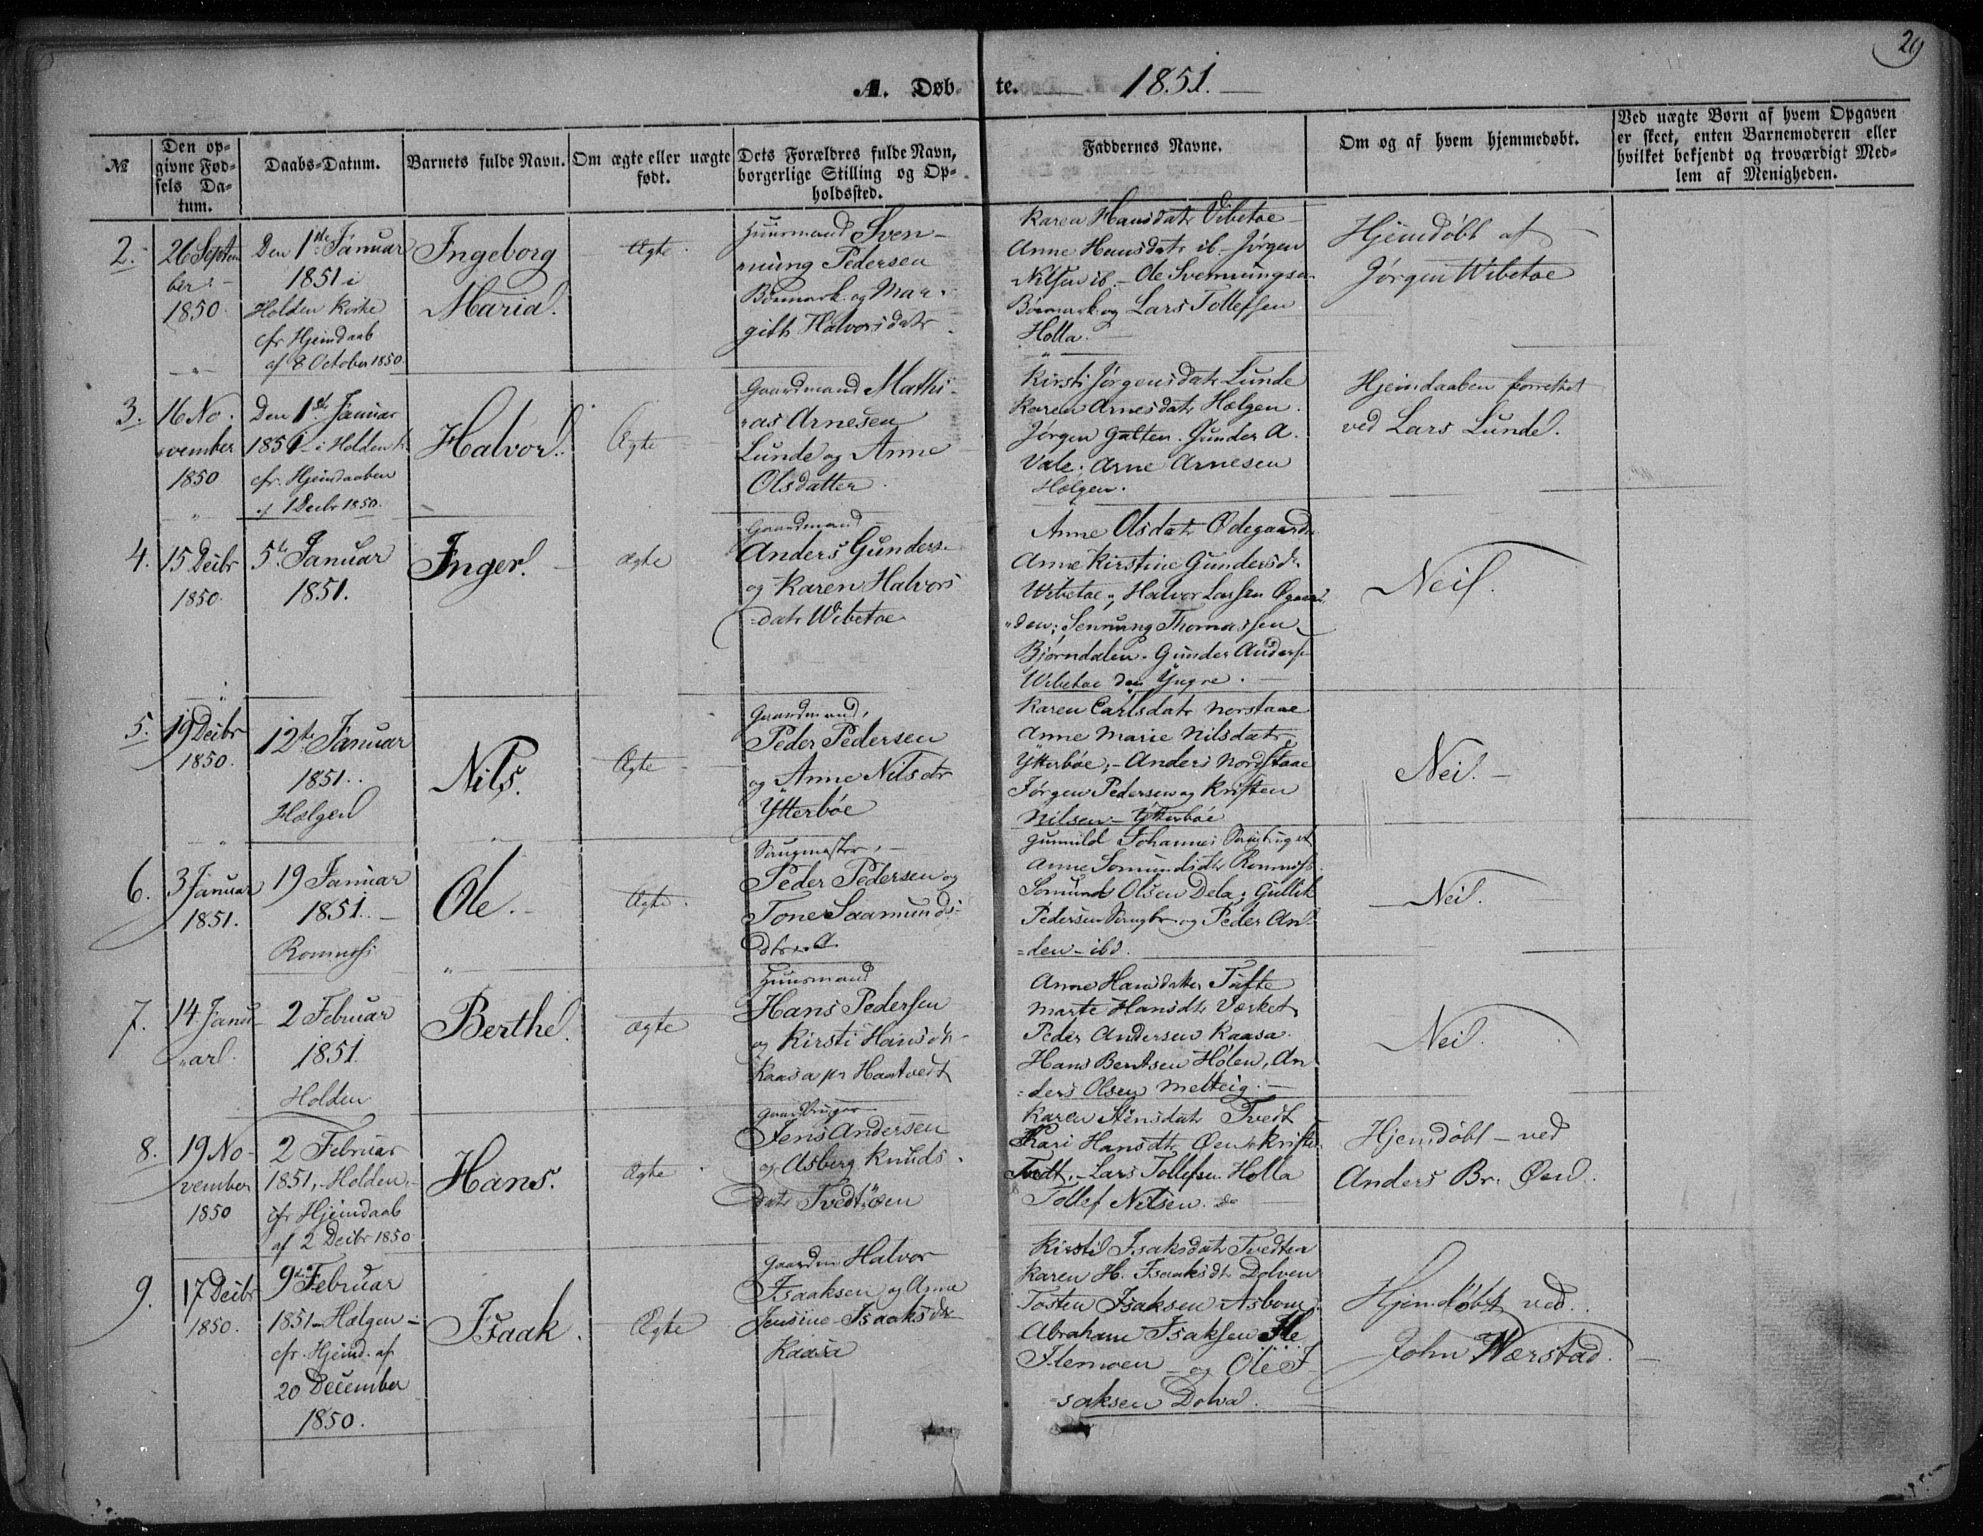 29
A. Døbte. 1851.
№
Den opgivne Fødsels Datum.
Daabs-Datum.
Barnets fulde Navn.
Om ægte eller uægte født.
Dets Forældres fulde Navn, borgerlige Stilling og Opholdssted.
Faddernes Navne.
Om og af hvem hjemmedøbt.
Ved uægte Børn af hvem Opgaven er skeet, enten Barnemoderen eller hvilket bekjendt og troværdigt Medlem af Menigheden.
2.
26 Septem
ber
1850
Den 1ste Januar
1851 i
Holden Kirke
cfr Hjemdaab
af 8 October 1850.
Ingeborg
Maria.
Ægte
Huusmand Sven-
nung Pedersen
og Mar
gith Halvorsdatr
Karen Hansdatr Vibetoe
Anne Hansdatr ib - Jørgen
Nilsen ib. - Ole Svennungsen
og Lars Tollefsen
Holla.
Hjemdøbt af
Jørgen Wibetoe
3.
16 No
vember
1850
Den 1ste Januar
1851 i Holden K
cfr. Hjemdaaben
af 1 Decbr 1850.
Halvor.
Ægte
Gaardmand Mathi
as Arnesen
Lunde og Anne
Olsdatter
Kirsti Jørgensdatr Lunde
Karen Arnesdatr Hælgen
Jørgen Galten. Gunder A.
Vale. Arne Arnesen
Hælgen.
Hjemdaaben forrettet
ved Lars Lunde.
4.
15 Decbr
1850.
5te Januar
1851.
Inger.
Ægte
Gaardmand
Anders Gunders.
og Karen Halvors
datr Wibetoe
Anne Olsdatr Ødegaarden
Anne Kirstine Gundersdr
Wibetoe, Halvor Larsen Øgaar
den; Sennung Thomassen
Bjørndalen. Gunder Anders
Wibetoe den Yngre.
Nei.
5.
19 Decbr
1850.
12te Januar
1851.
Hælgen
Nils.
Ægte
Gaardmand,
Peder Pedersen
og Anne Nilsdtr
Ytterbøe
Karen Carlsdatr Norstaae
Anne Marie Nilsdatr
Ytterbøe; - Anders Nordstaae
Jørgen Pedersen og Kristen
Nilsen - Ytterbøe
Nei.
6.
3 Januar
1851.
19 Januar
1851.
Romnæs
Ole.
Ægte
Saugmester,
Peder Pedersen og
Tone Saamunds
dtr
Gunnild Johannes Saubruget
Anne Somundsdtr Romnæs
Somund Olsen Dela; Gullik
Pedersen Saugbr og Peder An
den - ibd.
Nei.
7.
14 Janu
ar.
2 Februar
1851
Holden
Berthe.
Ægte
Huusmand
Hans Pedersen
og Kirsti Hansdtr
Kaasa pr Haatvedt
Anne Hansdatter Tufte
Marte Hansdtr Værket
Peder Andersen Kaasa
Hans Bentsen Holen, An
ders Olsen Melteig.
Nei.
8.
19 No
vember
1850
2 Februar
1851, Holden,
cfr Hjemdaab
af 2 Decbr 1850
Hans.
Ægte
Gaardbruger
Jens Andersen
og Asberg Knuds
datr Tvedtøen
Karen Stensdatr Tvedt
Kari Hansdtr Øen Kristen
Tvedt, - Lars Tollefsen Holla
Tollef Nilsen. do
Hjemdøbt - ved
Anders Br. Øen.
9.
17 Decbr
1850.
9de Februar
1851 - Hælgen -
cfr. Hjemd. af
20 December
1850.
Isaak.
Ægte
Gaardm Halvor
Isaaksen og Anne
Jensine Isaaksdtr
Kaasa
Kirsti Isaksdatr Tvedten
Karen H. Isaaksdtr Dolven
Tosten Isaksen Asbom
Abraham Isaksen
Flemoen - og Ole I
saksen Dolva.
Hjemdøbt ved
John Værstad.